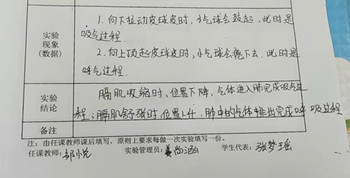 实验
现象
(数据)
1.向下拉动皮球皮时,小气球会鼓起,此时是
吸气过程
2.向上顶起皮球皮时,小气球会瘪下去,此时是
呼气过程
实验
结论
膈肌收缩时,位置下降,气体进入肺完成吸气过
程;膈肌舒张时,位置上升,肺中的气体排出完成呼吸过程
备注
注:由任课教师课后填写,原则上要求每做一次实验填写一份。
任课教师: 实验管理员: 学生代表:张梦瑶